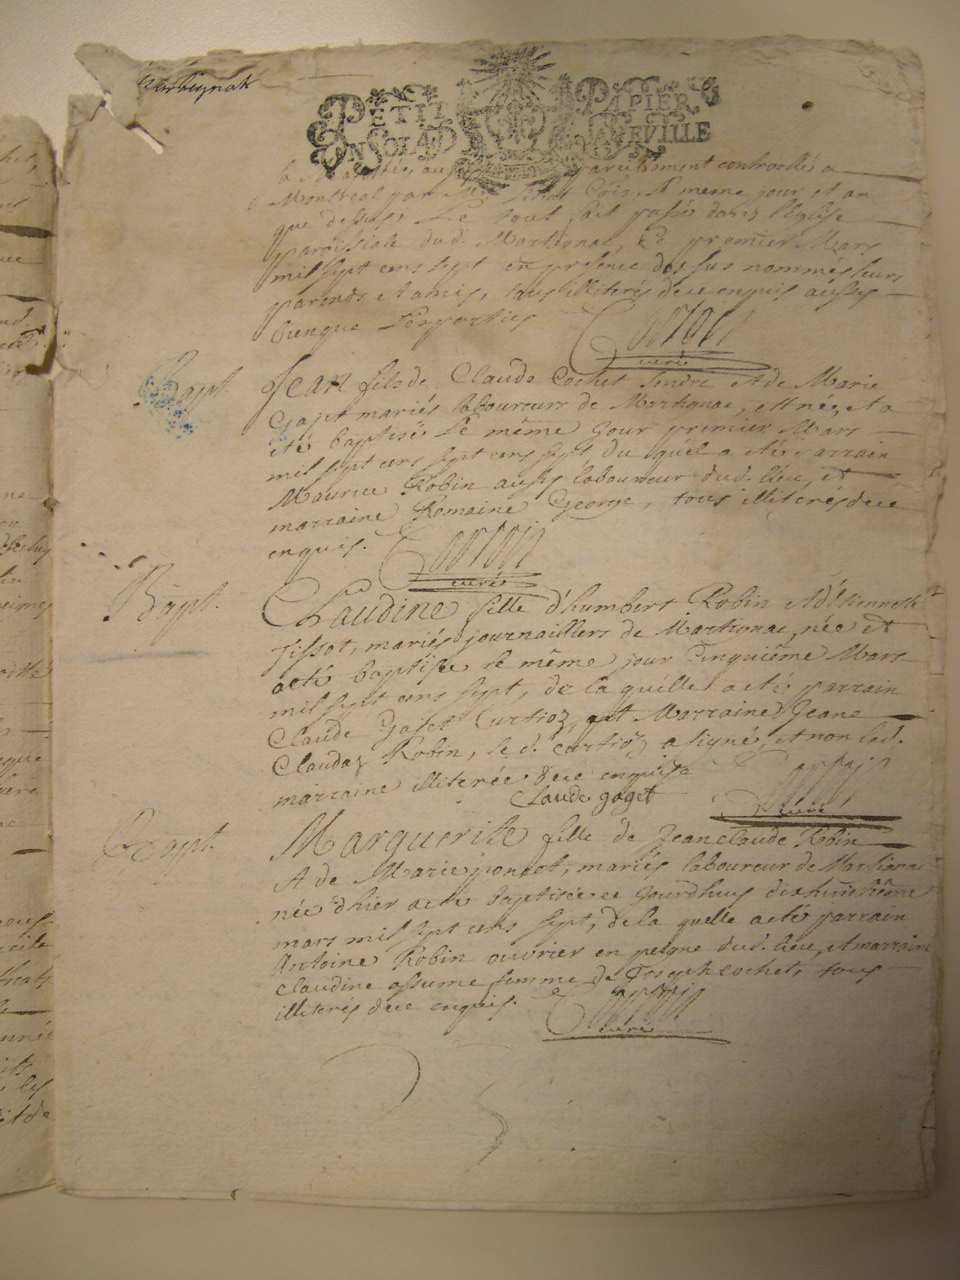 PETIT PAPIER
UN SOL A D REVILLE
parcillement controollé a
Montreal par le même jour et an
que dessus, Le tout fait passé dans l'Eglise
paroissiale dud. Martignac, Ce premier Mars
mil sept cens sept en presence des sus nommés leurs
parents et amis, tous illiterés de ce enquis aussy
bien que les parties
curé
Bapt. Jean fils de Claude Cochet et de Marie
Gajet mariés laboureurs de Martignac, est né, et a
été baptisé le même jour premier Mars
mil sept cens sept du quel a été parrain
Maurice Robin aussy laboureur dud. lieu, et
marraine Romaine George, tous illiterés de ce
enquis.
curé
Bapt. Claudine fille d'humbert Robin et d'Etiennette
Tissot, mariés journaliers de Martignac, née et
a eté baptisée le même jour cinquième Mars
mil sept cens sept, de la quelle a eté parrain
Claude Gajet Curtioz, et Marraine Jeane
Claudaz Robin, le d. Curtioz a signé, et non lad.
marraine illiterée de ce enquise
Claude gaget
curé
Bapt. Marguerite fille de Jean Claude Robin
et de Marie poncet, mariés laboureur de Martignac
née d'hier a eté baptisée ce jourdhuy dixhuictième
mars mil sept cens sept, de la quelle a eté parrain
Antoine Robin ouvrier en peigne dud. lieu, et marraine
Claudine assume femme de Joseph Cochet, tous
illiterés de ce enquis.
curé